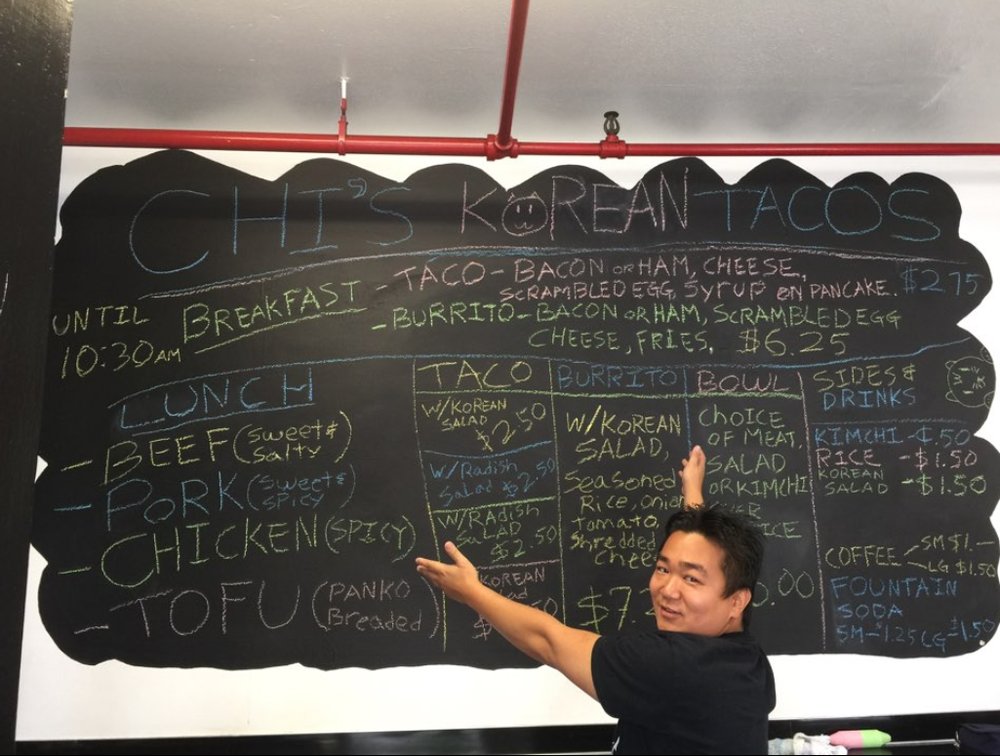 CHI'S KOREAN TACOS
UNTIL
10:30AM
BREAKFAST
- TACO - BACON OR HAM, CHEESE,
SCRAMBLED EGG, SYRUP ON PANCAKE. $2.75
- BURRITO - BACON OR HAM, SCRAMBLED EGG
CHEESE, FRIES. $6.25
LUNCH
- BEEF (Sweet & Salty)
- PORK (Sweet & Spicy)
- CHICKEN (SPICY)
- TOFU (PANKO Breaded)
TACO
W/KOREAN
SALAD
$2.50
W/Radish
Salad $2.50
W/RAdish
SaLAD
$2.50
KOREAN
BURRITO
W/KOREAN
SALAD,
Seasoned
Rice, onion
tomato,
Shredded
Cheese
$7.
BOWL
CHOICE
OF MEAT,
SALAD
OR KIMCHI
SIDES &
DRINKS
KIMCHI - $.50
RICE - $1.50
KOREAN
SALAD - $1.50
COFFEE SM $1.-
LG $1.50
FOUNTAIN
SODA
SM - $1.25 LG $1.50